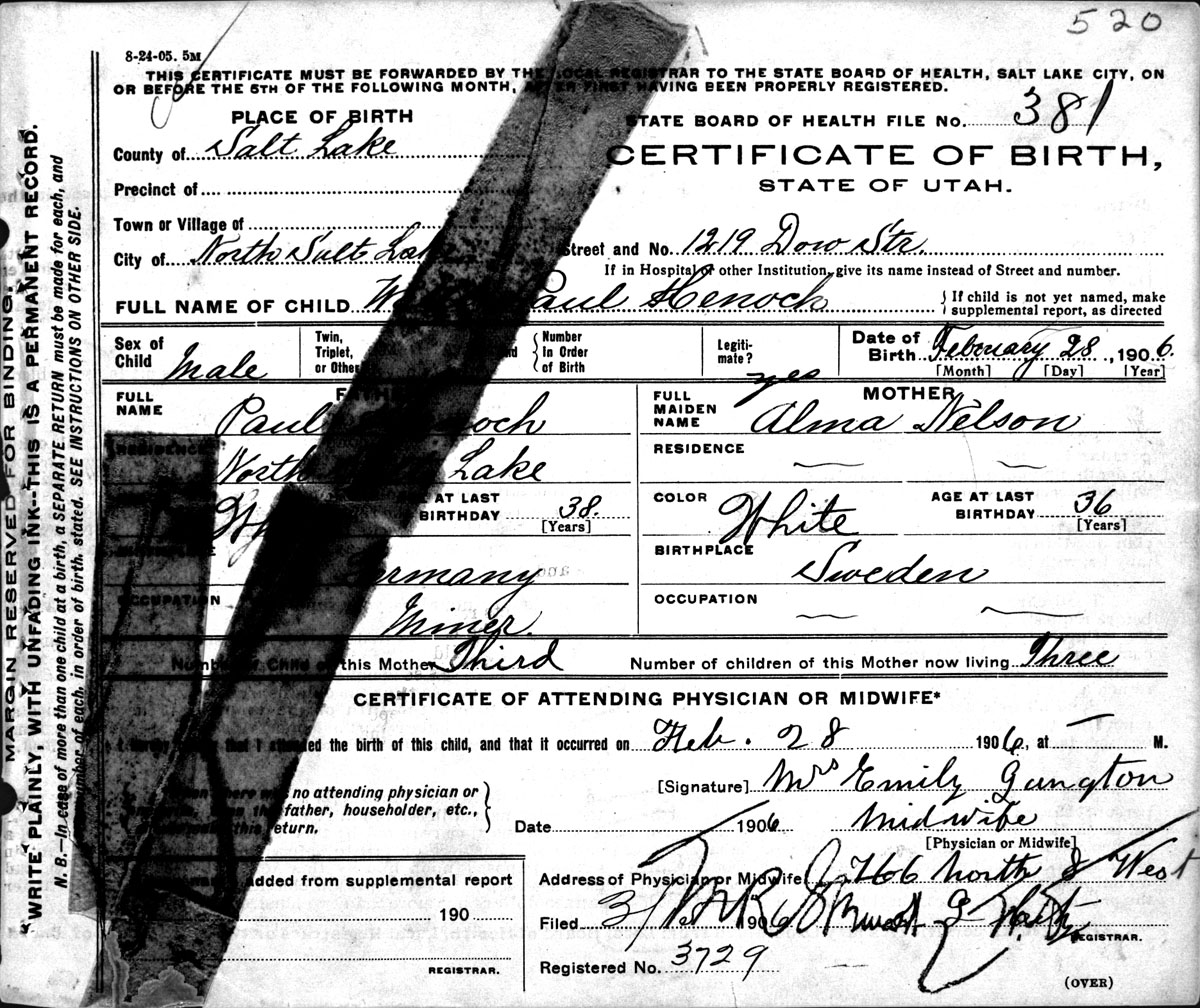 520
8-24-05. 5M
THIS CERTIFICATE MUST BE FORWARDED BY THE LOCAL REGISTRAR TO THE STATE BOARD OF HEALTH, SALT LAKE CITY, ON
OR BEFORE THE 5TH OF THE FOLLOWING MONTH, AFTER FIRST HAVING BEEN PROPERLY REGISTERED.
MARGIN RESERVED FOR BINDING.
WRITE PLAINLY, WITH UNFADING INK--THIS IS A PERMANENT RECORD.
N. B.—In case of more than one child at a birth, a SEPARATE RETURN must be made for each, and
number of each, in order of birth, stated. SEE INSTRUCTIONS ON OTHER SIDE.
PLACE OF BIRTH
County of Salt Lake
Precinct of
Town or Village of
City of North Salt Lake
STATE BOARD OF HEALTH FILE No. 381
CERTIFICATE OF BIRTH,
STATE OF UTAH.
Street and No. 1219 Dow Str.
If in Hospital or other Institution, give its name instead of Street and number.
FULL NAME OF CHILD Paul Henoch
If child is not yet named, make
supplemental report, as directed
Sex of Child Male
Twin, Triplet, or Other
Number In Order of Birth
Legiti-mate? yes
Date of Birth February 28, 1906.
[Month] [Day] [Year]
FATHER
FULL NAME Paul Henoch
RESIDENCE North Lake
AGE AT LAST BIRTHDAY 38
[Years]
Germany
OCCUPATION
Miner.
MOTHER
FULL MAIDEN NAME Alma Nelson
RESIDENCE
COLOR White
AGE AT LAST BIRTHDAY 36
[Years]
BIRTHPLACE
Sweden
OCCUPATION
Number of Child of this Mother Third
Number of children of this Mother now living Three
CERTIFICATE OF ATTENDING PHYSICIAN OR MIDWIFE*
that I attended the birth of this child, and that it occurred on Feb. 28 1906, at M.
[Signature] Mrs Emily
no attending physician or
father, householder, etc.,
this return.
Date 1906
Midwife
[Physician or Midwife]
Address of Physician or Midwife 766 North West
added from supplemental report
190
REGISTRAR.
Filed 3/ 1906
REGISTRAR.
Registered No. 3729
(OVER)